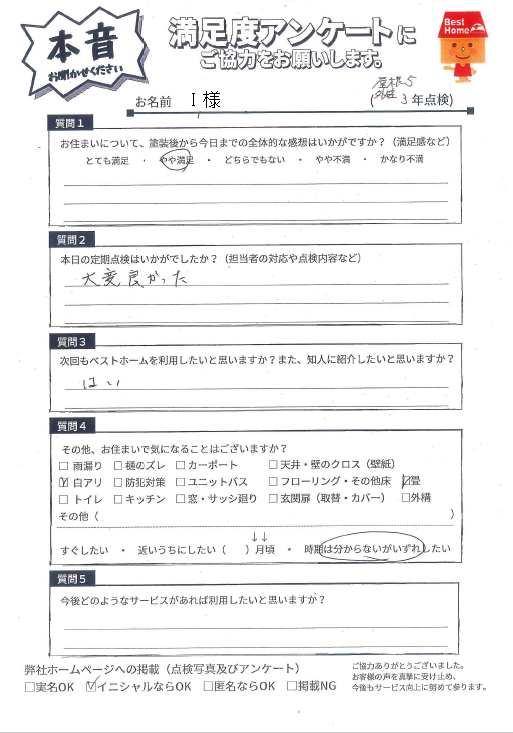 本音
お聞かせください
満足度アンケートに
ご協力をお願いします。
Best
Home
お名前 I 様
屋根5
外壁
( 3年点検)
質問1
お住まいについて、塗装後から今日までの全体的な感想はいかがですか？（満足感など）
とても満足 ・ やや満足 ・ どちらでもない ・ やや不満 ・ かなり不満
質問2
本日の定期点検はいかがでしたか？（担当者の対応や点検内容など）
大変良かった
質問3
次回もベストホームを利用したいと思いますか？また、知人に紹介したいと思いますか？
はい
質問4
その他、お住まいで気になることはございますか？
□ 雨漏り □ 樋のズレ □ カーポート □ 天井・壁のクロス（壁紙）
☑ 白アリ □ 防犯対策 □ ユニットバス □ フローリング・その他床 ☑畳
□ トイレ □ キッチン □ 窓・サッシ廻り □ 玄関扉（取替・カバー） □外構
その他（ ）
↓↓
すぐしたい ・ 近いうちにしたい（ ）月頃 ・ 時期は分からないがいずれしたい
質問5
今後どのようなサービスがあれば利用したいと思いますか？
弊社ホームページへの掲載（点検写真及びアンケート）
□実名OK ☑イニシャルならOK □匿名ならOK □掲載NG
ご協力ありがとうございました。
お客様の声を真摯に受け止め、
今後もサービス向上に努めて参ります。